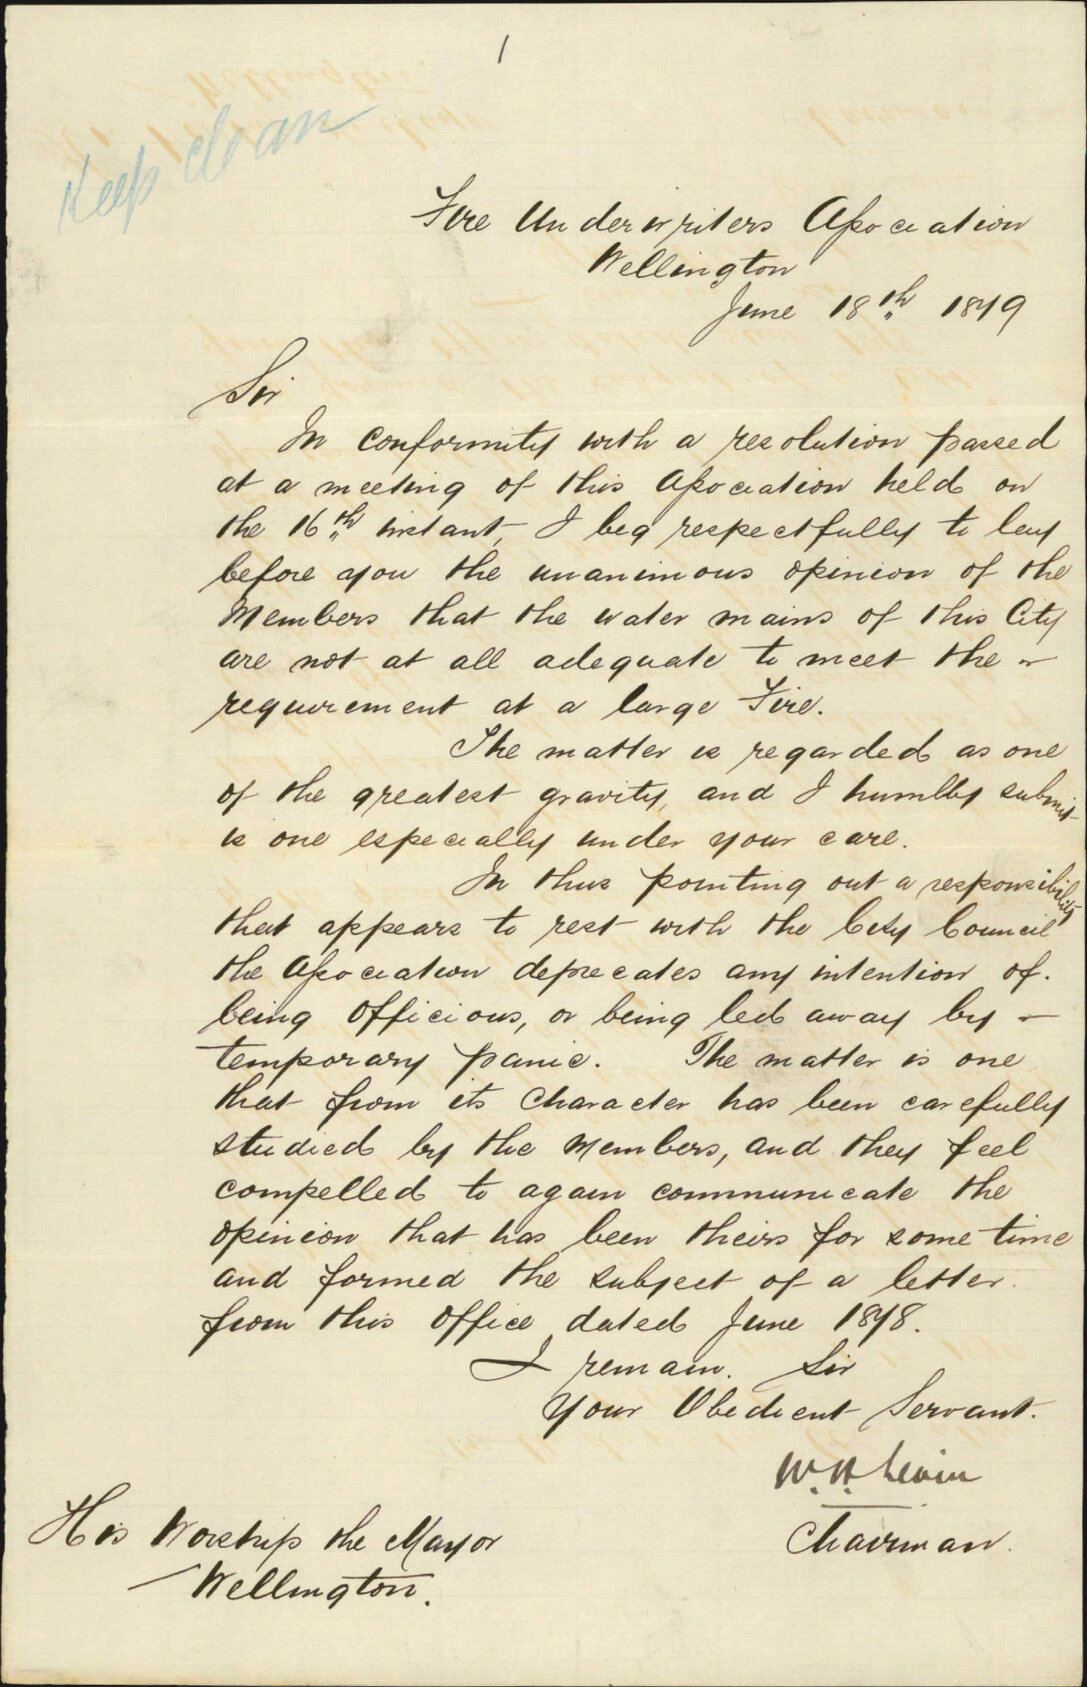 1
Keep clean
Fire Underwriters Association
Wellington
June 18th 1879
Sir
In conformity with a resolution passed
at a meeting of this Association held on
the 16th instant, I beg respectfully to lay
before you the unanimous opinion of the
Members that the water mains of this City
are not at all adequate to meet the
requirement at a large Fire.
The matter is regarded as one
of the greatest gravity, and I humbly submit
is one especially under your care.
In thus pointing out a responsibility
that appears to rest with the City Council
the Association deprecates any intention of.
being officious, or being led away by
temporary panic. The matter is one
that from its Character has been carefully
studied by the Members, and they feel
compelled to again communicate the
opinion that has been theirs for some time
and formed the subject of a letter
from this Office dated June 1878.
I remain. Sir
Your Obedient Servant.
W. H. Levin
Chairman.
His Worship the Mayor
Wellington.